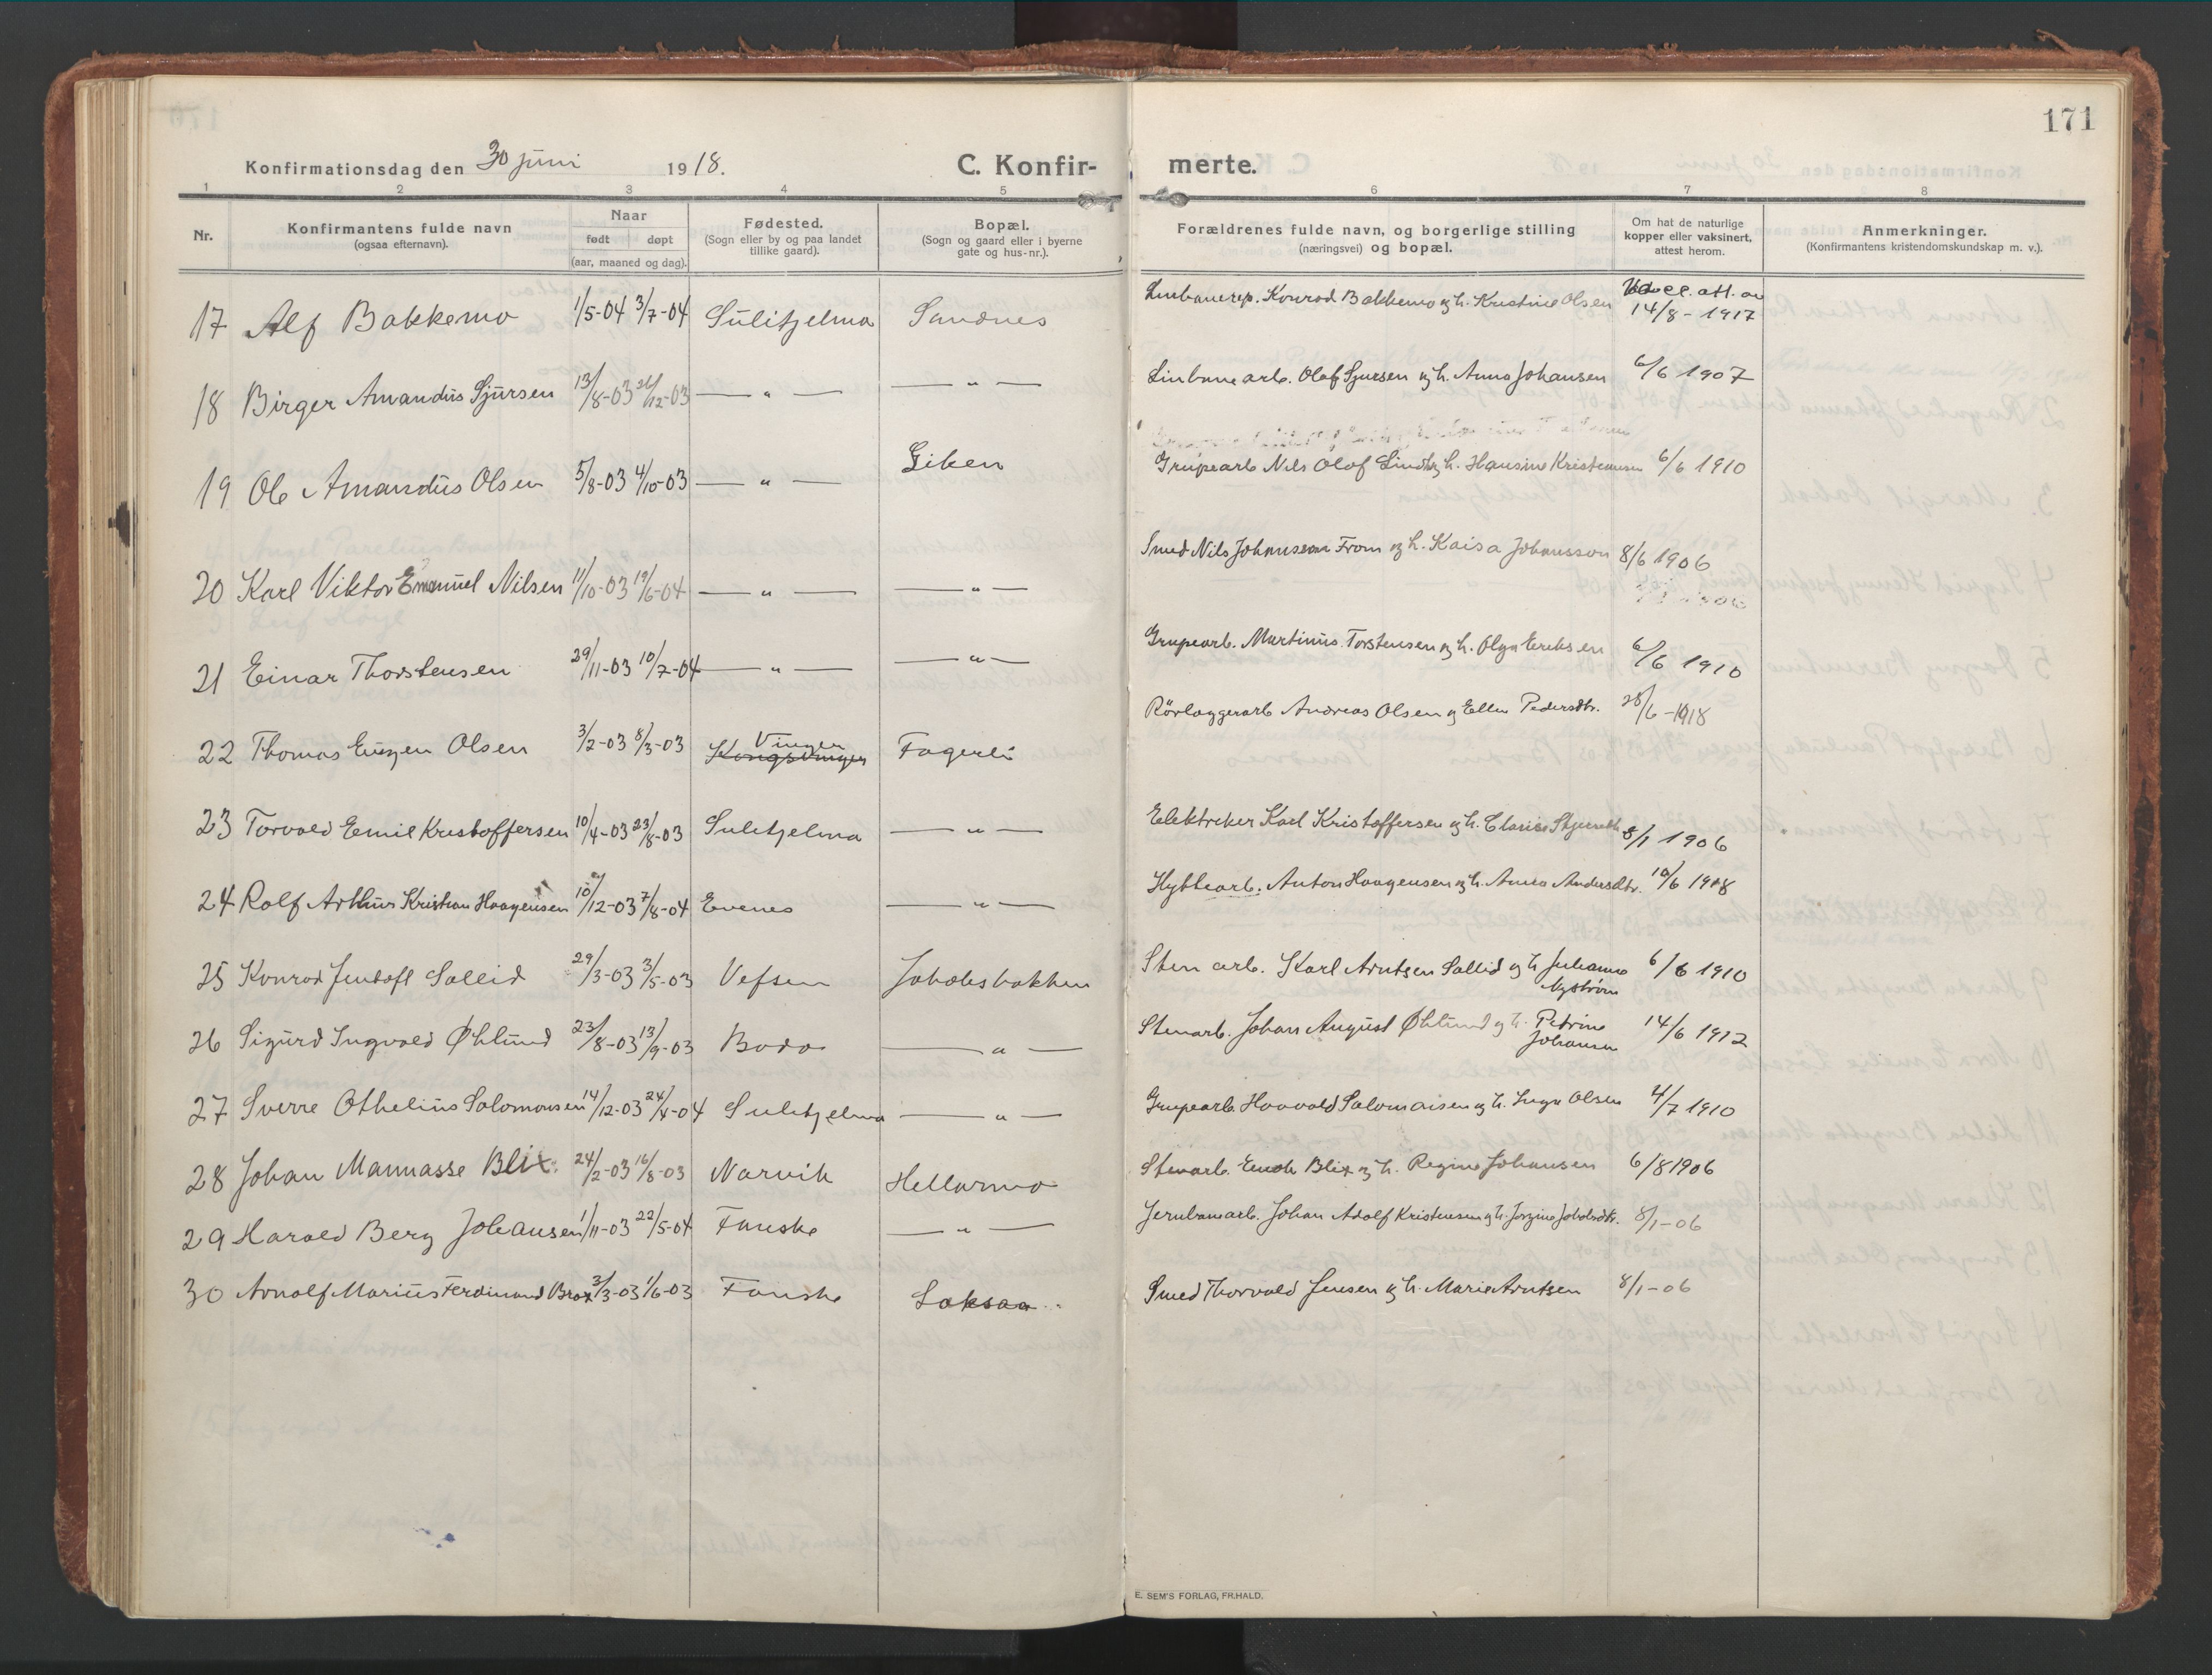 171
Konfirmationsdag den 30 juni 1918. C. Konfirmerte.
1 2 3 4 5 6 7 8
Nr. Konfirmantens fulde navn (ogsaa efternavn). Naar født døpt (aar, maaned og dag). Fødested. (Sogn eller by og paa landet tillike gaard). Bopæl. (Sogn og gaard eller i byerne gate og hus-nr.). Forældrenes fulde navn, og borgerlige stilling (næringsvei) og bopæl. Om hat de naturlige kopper eller vaksinert, attest herom. Anmerkninger. (Konfirmantens kristendomskundskap m. v.).
17 Alf Bakkemo 1/5-04 3/7-04 Sulitjelma Sandnes Linbanerep. Konrad Bakkemo og h. Kristine Olsen att. av 14/8-1917
18 Birger Amandus Sjursen 13/8-03 26/12-03 — " — — " — Linbanearb. Olaf Sjursen og h. Anna Johansen 6/6 1907
19 Ole Amandus Olsen 5/8-03 4/10-03 — " — Giken Grupearb Nils Olof Lindb. og h. Hansine Kristensen 6/6 1910
20 Karl Viktor Emanuel Nilsen 11/10-03 19/6-04 — " — — " — Smed Nils Johanson From og h. Kaisa Johansson 8/6 1906
21 Einar Thorstensen 29/11-03 10/7-04 — " — — " — Grupearb. Martinus Torstensen og h. Olga Eriksen 6/6 1910
22 Thomas Eugen Olsen 3/2-03 8/3-03 Kongsvinger Vinger Fagerli Rörlaggerarb Andreas Olsen og Ellen Pedersdtr. 28/6-1918
23 Torvald Emil Kristoffersen 10/4-03 23/8-03 Sulitjelma — " — Elektriker Karl Kristoffersen og h. 8/1 1906
24 Rolf Arthur Kristian Haagensen 10/12-03 7/8-04 Evenes — " — Hyttearb. Anton Haagensen og h. Anna Andersdtr. 10/6 1918
25 Konrad Jentoft Sollid 29/3-03 3/5-03 Vefsen Jakobsbakken Sten arb. Karl Arntsen Sollid og h Julianne Nyström 6/6 1910
26 Sigurd Ingvald Øhlund 23/8-03 13/9-03 Bodø — " — Stenarb. Johan August Øhlund og h. Petrine Johansen 14/6 1912
27 Sverre Othelius Salomonsen 14/12-03 24/4-04 Sulitjelma — " — Grupearb. Haavald Salomonsen og h. Inga Olsen 4/7 1910
28 Johan Mannasse Blix. 24/2-03 16/8-03 Narvik Hellarmo Stenarb. Enok Blix og h. Regine Johansen 6/8 1906
29 Harald Berg Johansen 1/11-03 22/5-04 Fauske — " — Jernbanearb. Johan Adolf Kristensen og h. Jorgine Jakobsdtr. 8/1-06
30 Arnolf Marius Ferdinand Brox 3/3-03 1/6-03 Fauske Laksaa Smed Thorvald Jensen og h. Marie Arntsen 8/1-06
E. SEM'S FORLAG, FR.HALD.